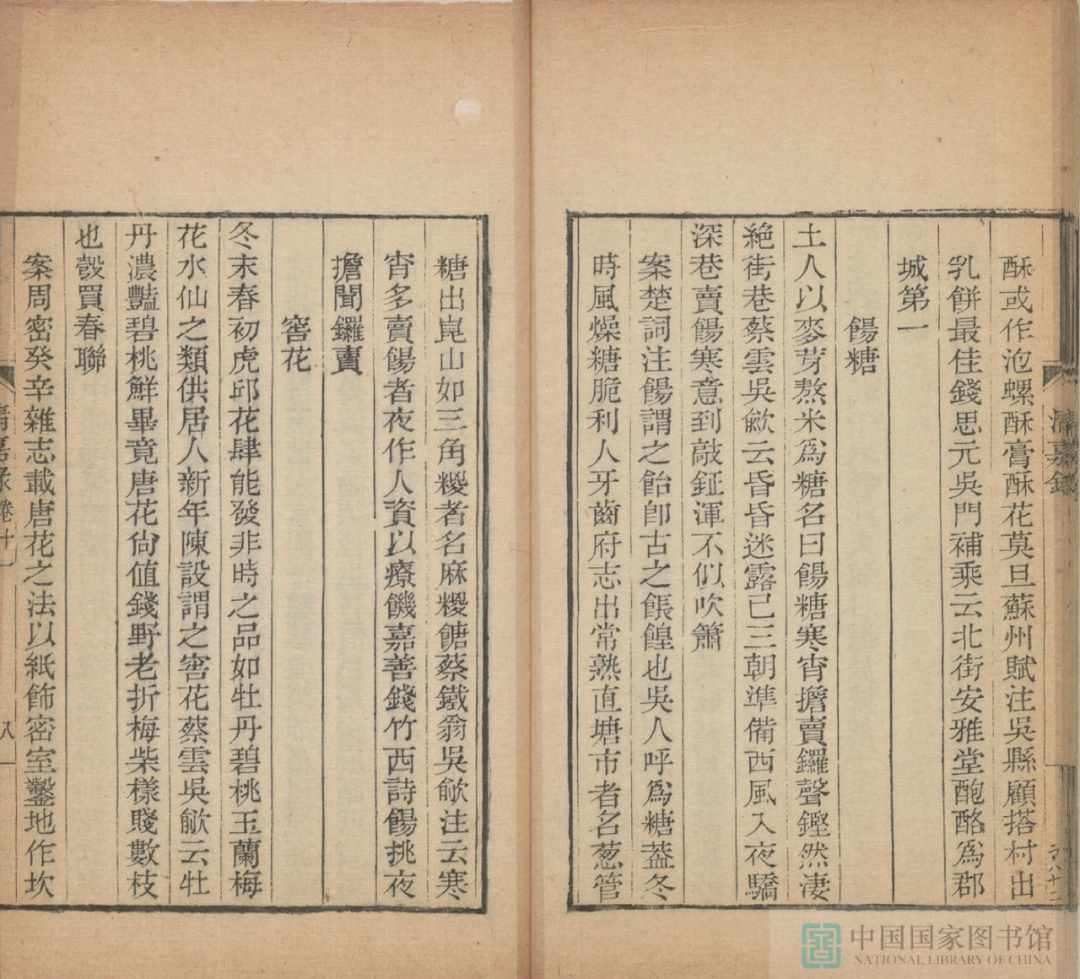 酥或作泡螺酥膏酥花莫旦蘇州賦注吳縣顧搭村出
乳餅最佳錢思元吳門補乘云北街安雅堂酏酪爲郡
城第一
餳糖
土人以麥芽熬米爲糖名曰餳糖寒宵擔賣鑼聲鏗然淒
絕街巷蔡雲吳歈云昏昏迷露已三朝準備西風入夜驕
深巷賣餳寒意到敲鉦渾不似吹簫
案楚詞注餳謂之飴卽古之餦餭也吳人呼爲糖蓋冬
時風燥糖脆利人牙齒府志出常熟直塘市者名葱管
糖出崑山如三角糉者名麻糉餹蔡鐵翁吳歈注云寒
宵多賣餳者夜作人資以療饑嘉善錢竹西詩餳挑夜
擔聞鑼賣
窖花
冬末春初虎邱花肆能發非時之品如牡丹碧桃玉蘭梅
花水仙之類供居人新年陳設謂之窖花蔡雲吳歈云牡
丹濃豔碧桃鮮畢竟唐花尙值錢野老折梅柴樣賤數枝
也彀買春聯
案周密癸辛雜志載唐花之法以紙飾密室鑿地作坎
清嘉錄
清嘉錄卷十一
八
中国国家图书馆
NATIONAL LIBRARY OF CHINA